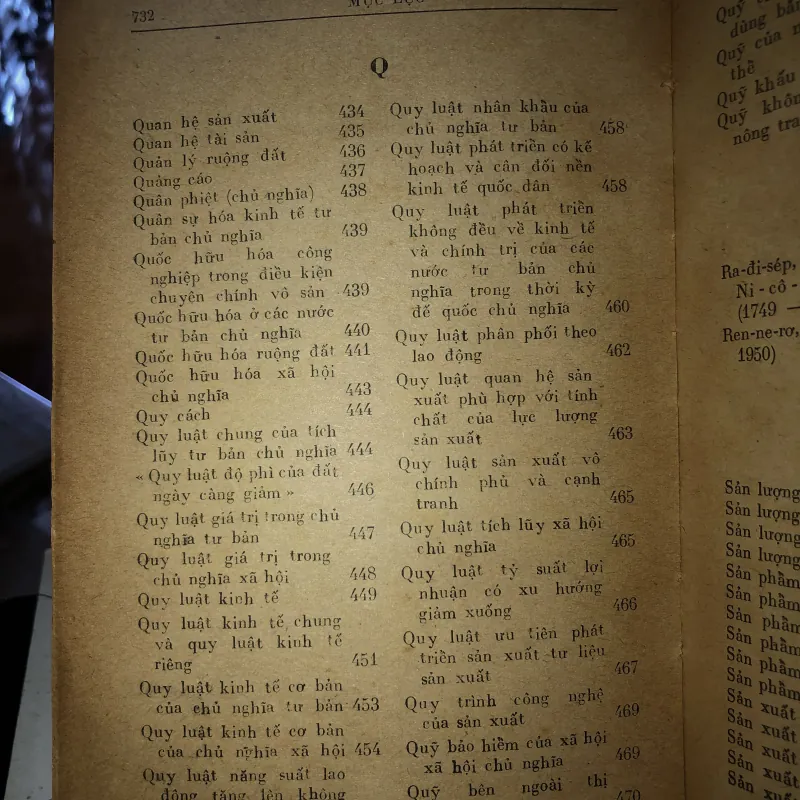 732
MỤC LỤC
Q
Quan hệ sản xuất 434
Quan hệ tài sản 435
Quản lý ruộng đất 436
Quảng cáo 437
Quân phiệt (chủ nghĩa) 438
Quân sự hóa kinh tế tư
bản chủ nghĩa 439
Quốc hữu hóa công
nghiệp trong điều kiện
chuyên chính vô sản 439
Quốc hữu hóa ở các nước
tư bản chủ nghĩa 440
Quốc hữu hóa ruộng đất 441
Quốc hữu hóa xã hội
chủ nghĩa 443
Quy cách 444
Quy luật chung của tích
lũy tư bản chủ nghĩa 444
« Quy luật độ phì của đất
ngày càng giảm » 446
Quy luật giá trị trong chủ
nghĩa tư bản 447
Quy luật giá trị trong
chủ nghĩa xã hội 448
Quy luật kinh tế 449
Quy luật kinh tế chung
và quy luật kinh tế
riêng 451
Quy luật kinh tế cơ bản
của chủ nghĩa tư bản 453
Quy luật kinh tế cơ bản
của chủ nghĩa xã hội 454
Quy luật năng suất lao
động tăng lên không
Quy luật nhân khẩu của
chủ nghĩa tư bản 458
Quy luật phát triển có kế
hoạch và cân đối nền
kinh tế quốc dân 458
Quy luật phát triển
không đều về kinh tế
và chính trị của các
nước tư bản chủ
nghĩa trong thời kỳ
đế quốc chủ nghĩa 460
Quy luật phân phối theo
lao động 462
Quy luật quan hệ sản
xuất phù hợp với tính
chất của lực lượng
sản xuất 463
Quy luật sản xuất vô
chính phủ và cạnh
tranh 465
Quy luật tích lũy xã hội
chủ nghĩa 465
Quy luật tỷ suất lợi
nhuận có xu hướng
giảm xuống 466
Quy luật ưu tiên phát
triển sản xuất tư liệu
sản xuất 467
Quy trình công nghệ
của sản xuất 469
Quỹ bảo hiểm của xã hội
xã hội chủ nghĩa 469
Quỹ bên ngoài thị 470
Quỹ
dùng bản
Quỹ của
thể
Quỹ khấu
Quỹ khôn
nông tra
Ra-đi-sép,
Ni - cô -
(1749 —
Ren-ne-rơ,
1950)
Sản lượng
Sản lượng
Sản lượng
Sản lượng
Sản phẩm
Sản phẩm
Sản phẩm
Sản phẩm
Sản phẩm
Sản phẩm
Sản xuất
Sản xuất
Sản xuất
Sản xuất
Sản xuất